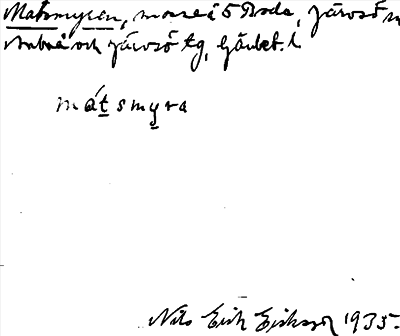 Matsmyran, mosse i S Roda, Järvsö
och Järvsö tg, Gävleb. l
mátsmyra
Nils Erik Eriksson 1935.